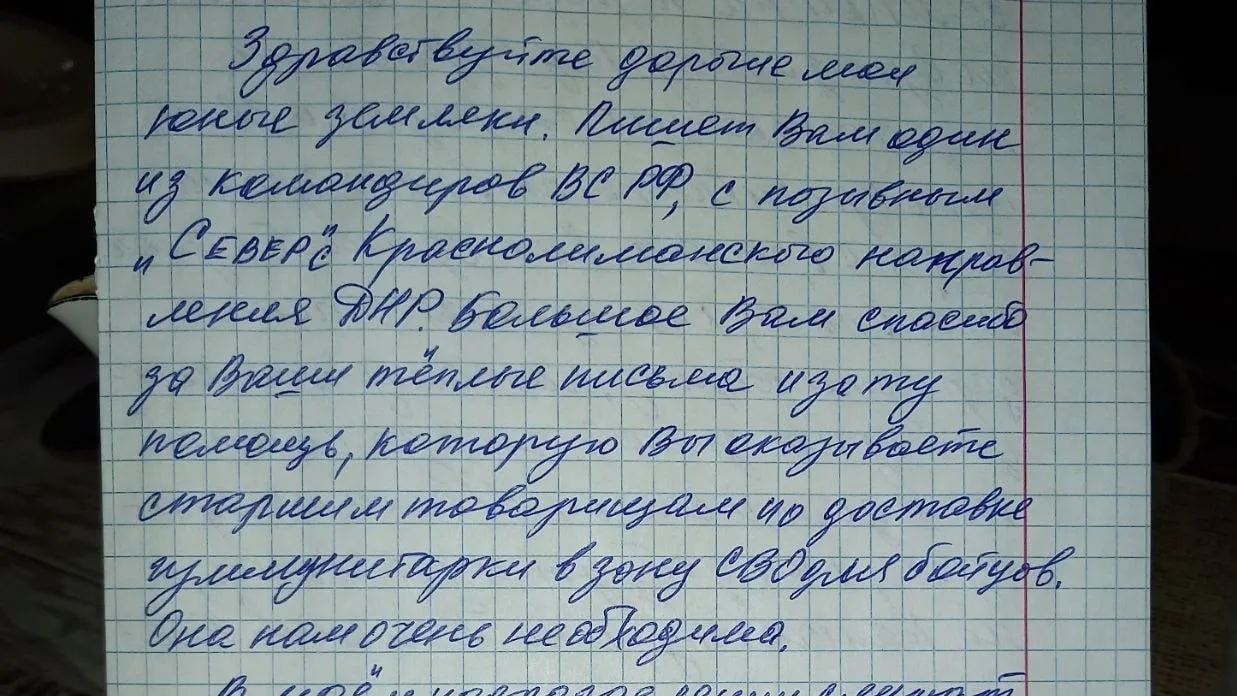 Здравствуйте дорогие мои
юные земляки. Пишет Вам один
из командиров ВС РФ, с позывным
"СЕВЕР" с Краснолиманского направ-
ления ДНР. Большое Вам спасибо
за Ваши тёплые письма и за ту
помощь, которую Вы оказываете
старшим товарищам по доставке
гуммунитарки в зону СВО для бойцов.
Она нам очень необходима.
В моё